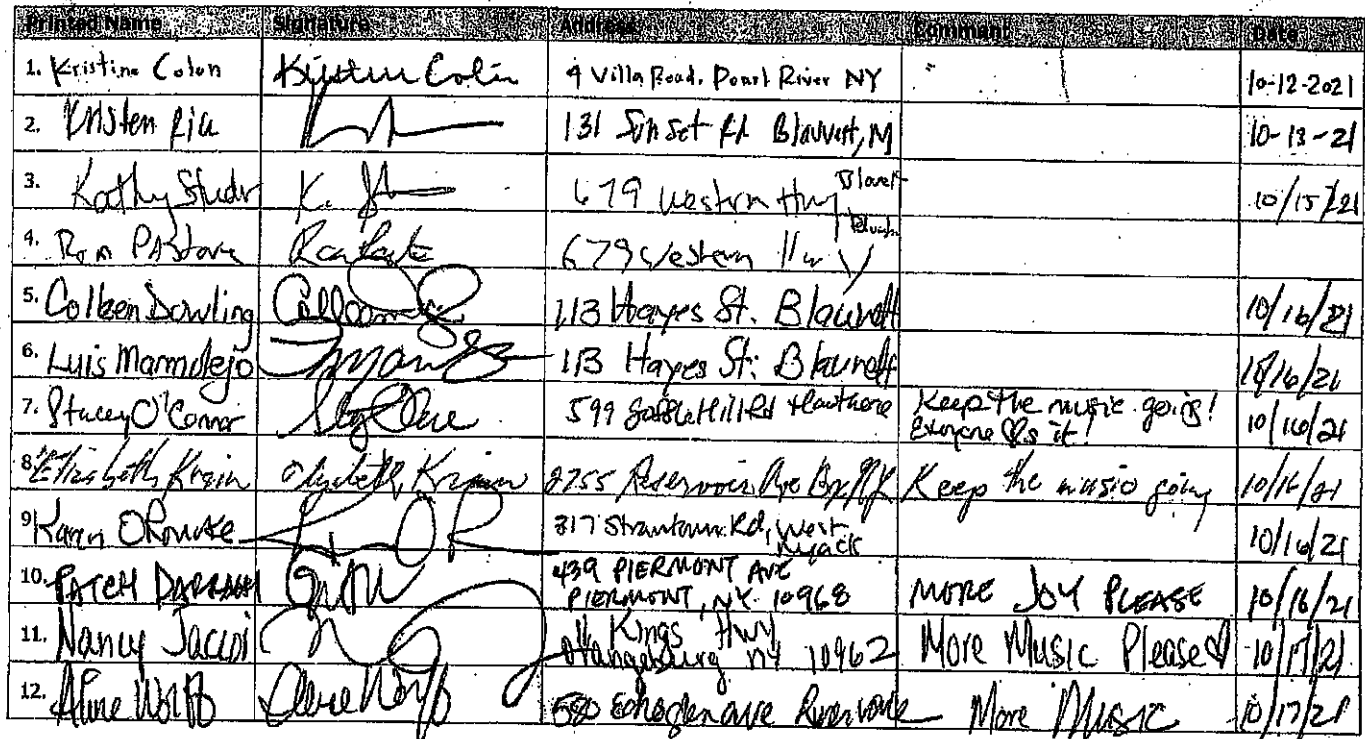 Printed Name Signature Address Comment Date
1. Kristine Colon Kristine Colon 9 Villa Road. Pearl River NY 10-12-2021
2. Kristen 131 Sunset Rd Blauvelt, 10-13-21
3. Kathy K. 679 Western Hwy 10/15/21
4. Ron Pastore 679 Western Hwy
5. Colleen Dowling Colleen 113 Hayes St. Blauvelt 10/16/21
6. Luis Marmolejo 113 Hayes St. Blauvelt 10/16/21
7. Stacey O'Connor 599 Hill Rd Hawthorne Keep the music going!
Everyone ♡s it! 10/16/21
8. Elizabeth Elizabeth 2755 Reservoir Ave Bx NY Keep the music going 10/16/21
9 Karen ORourke 317 Strawtown Rd, West
Nyack 10/16/21
10. PATCH 439 PIERMONT AVE
PIERMONT, NY 10968 MORE JOY PLEASE 10/16/21
11. Nancy Kings Hwy
Orangeburg NY 10962 More Music Please ♡ 10/17/21
12. Wolff 580 More Music 10/17/21